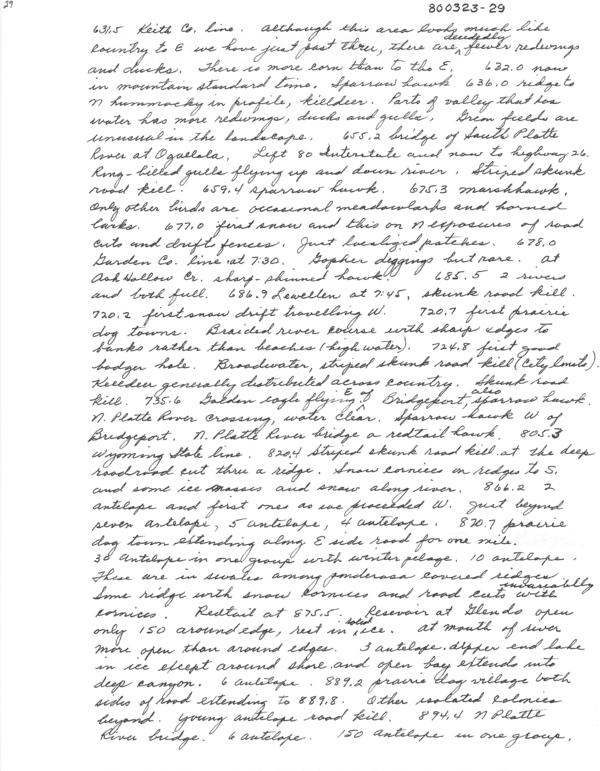 29
800323-29
631.5 Keith Co. line. Although this area looks much like
country to E we have just past thru, there are decidedly fewer redwings
and ducks. There is more corn than to the E. 632.0 now
in mountain standard time. Sparrow hawk 636.0 ridge to
N hummocky in profile, killdeer. Parts of valley that has
water has more redwings, ducks and gulls. Green fields are
unusual in the landscape. 655.2 bridge of South Platte
River at Ogallala. Left 80 Interstate and now to highway 26.
Ring-billed gulls flying up and down river. Striped skunk
road kill. 659.4 sparrow hawk. 675.3 marsh hawk.
Only other birds are occasional meadowlarks and horned
larks. 677.0 first snow and this on N exposures of road
cuts and drift fences. Just localized patches. 678.0
Garden Co. line at 7:30. Gopher diggings but rare. At
Ash Hollow Cr. sharp-shinned hawk. 685.5 2 rivers
and both full. 686.9 Lewellen at 7:45, skunk road kill.
720.2 first snow drift travelling W. 720.7 first prairie
dog towns. Braided river course with sharp edges to
banks rather than beaches (high water). 724.8 first good
badger hole. Broadwater, striped skunk road kill (city limits).
Killdeer generally distributed across country. Skunk road
kill. 735.6 Golden eagle flying E of Bridgeport, also sparrow hawk.
N. Platte River crossing, water clear. Sparrow hawk W of
Bridgeport. N. Platte River bridge a redtail hawk. 805.3
Wyoming State line. 820.4 Striped skunk road kill at the deep
road cut thru a ridge. Snow cornices on redges to S.
and some ice masses and snow along river. 866.2 2
antelope and first ones as we proceeded W. Just beyond
seven antelope, 5 antelope, 4 antelope. 870.7 prairie
dog town extending along E side road for one mile.
30 Antelope in one group with winter pelage. 10 antelope.
These are in swales among ponderosa covered ridges
Some ridge with snow cornices and road cuts invariably with
cornices. Redtail at 875.5. Resevoir at Glendo open
only 150 around edge, rest in solid ice. At mouth of river
more open than around edges. 3 antelope. Upper end lake
in ice except around shore and open bay extends into
deep canyon. 6 antelope. 889.2 prairie dog village both
sides of road extending to 889.8. Other isolated colonies
beyond. Young antelope road kill. 894.4 N Platte
River bridge. 6 antelope. 150 antelope in one group.